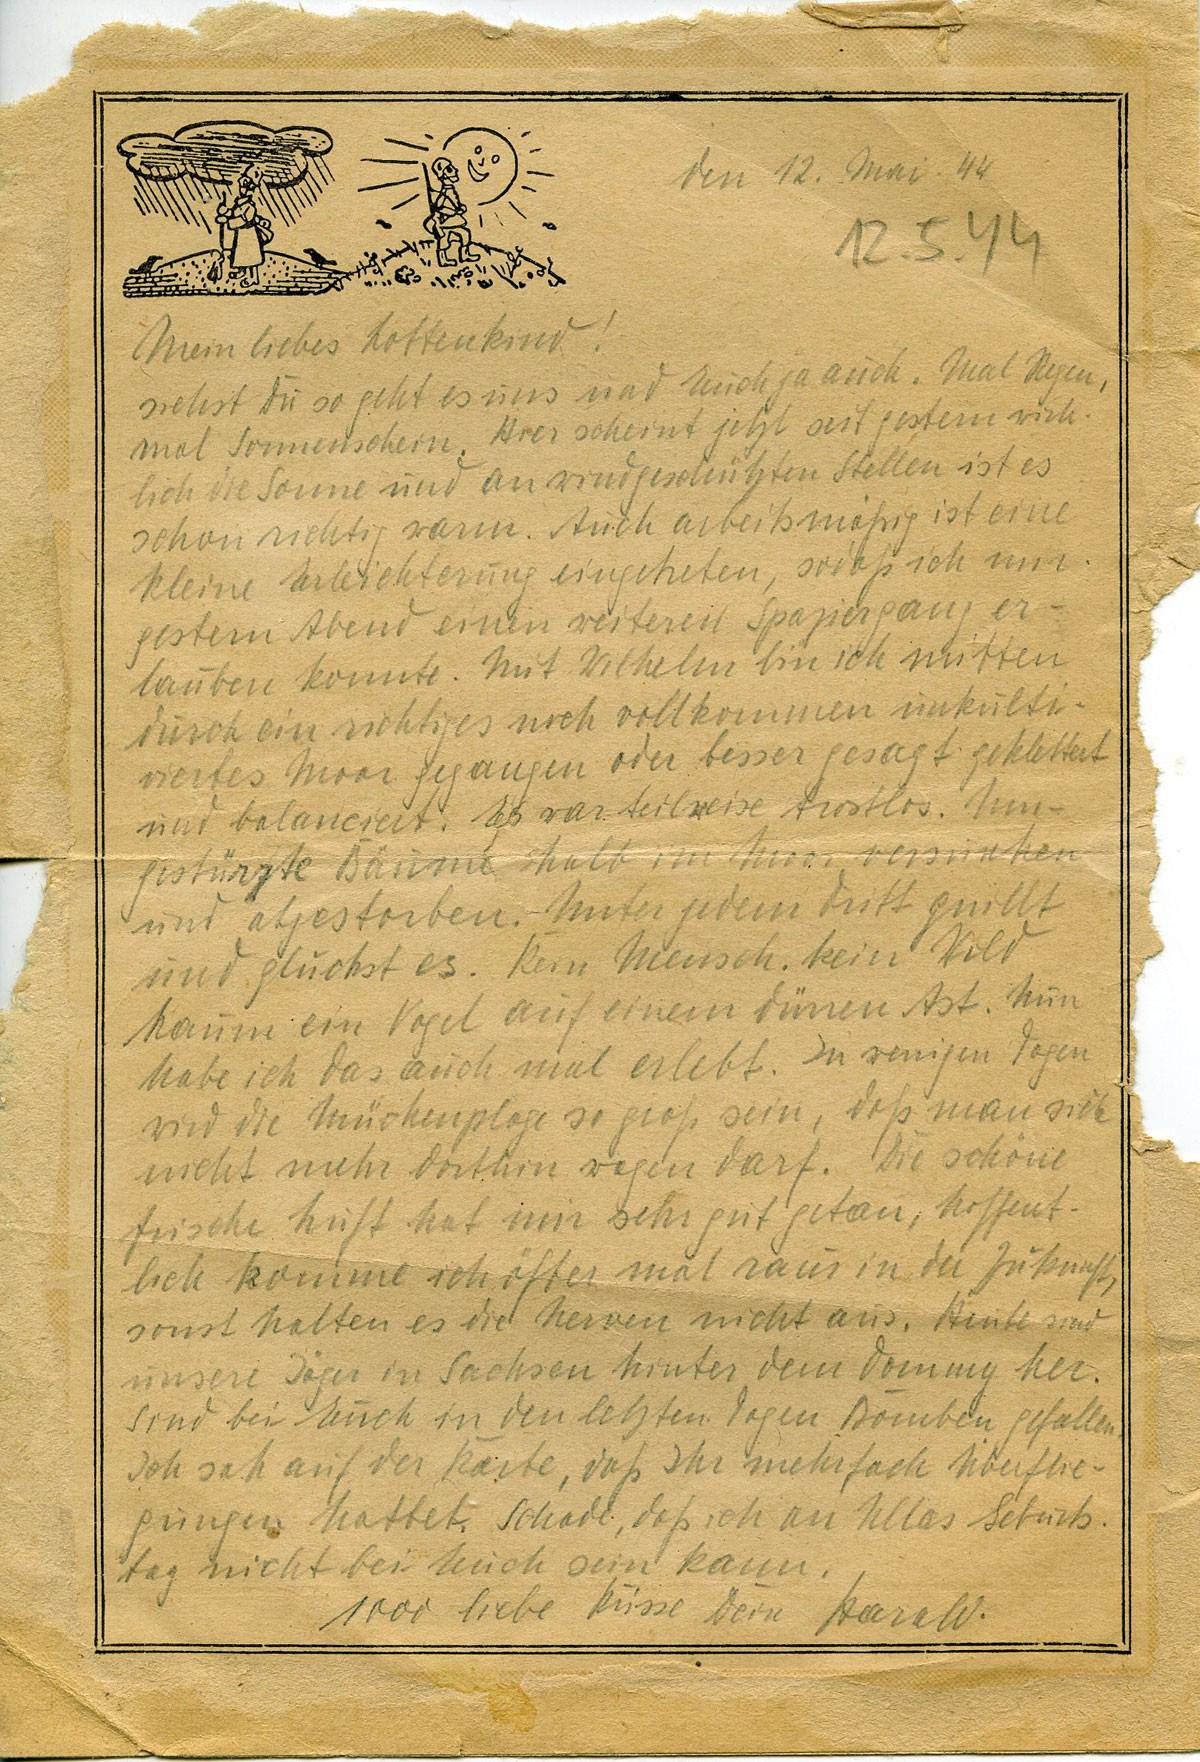 den 12. Mai. 44
12.5.44
Mein liebes Lottenkind!
siehst Du so geht es uns und Euch ja auch. Mal Regen,
mal Sonnenschein. Hier scheint jetzt seit gestern wirk-
lich die Sonne und an windgeschützten Stellen ist es
schon richtig warm. Auch arbeitsmäßig ist eine
kleine Erleichterung eingetreten, sodaß ich mir
gestern Abend einen weiteren Spaziergang er-
lauben konnte. Mit Wilhelm bin ich mitten
durch ein richtiges noch vollkommen unkulti-
viertes Moor gegangen oder besser gesagt geklettert
und balanciert. Es war teilweise trostlos. Um-
gestürzte Bäume halb im Moor versunken
und abgestorben. Unter jedem Tritt quillt
und gluckst es. Kein Mensch. kein Wild
kaum ein Vogel auf einem dürren Ast. Nun
habe ich das auch mal erlebt. In wenigen Tagen
wird die Mückenplage so groß sein, daß man sich
nicht mehr dorthin wagen darf. Die schöne
frische Luft hat mir sehr gut getan, hoffent-
lich komme ich öfter mal raus in der Zukunft,
sonst halten es die Nerven nicht aus. Heute sind
unsere Jäger in Sachsen hinter dem Tommy her.
Sind bei Euch in den letzten Tagen Bomben gefallen.
Ich sah auf der Karte, daß Ihr mehrfach Überflie-
gungen hattet. Schade, daß ich an Ullas Geburts-
tag nicht bei Euch sein kann.
1000 liebe Küsse Dein Harald.